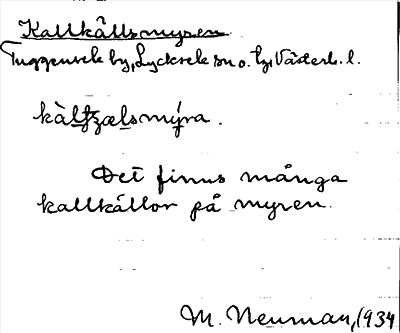 Kallkällsmyren
Tuggensele by, Lycksele sn o. tg, Västerb. l.
kàl̲f̲ʒæl̲smy̲ra.
Det finns många
kallkällor på myren.
M. Neuman, 1934